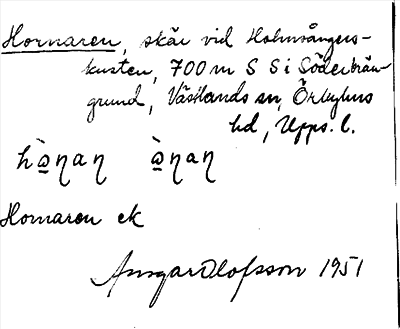 Hornaren, skär vid Holmsångers-
kusten, 700 m S S i Söderbrän-
grund, Västlands sn, Örbyhus
hd, Upps. l.
hὰ̲ηaη ὰ̲ηaη
Hornaren ek
Ansgar Olofsson 1951